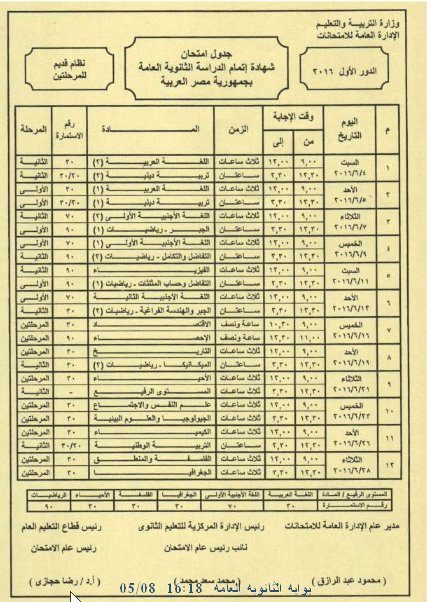 وزارة التربيـة والتعليـم
الإدارة العامة للامتحانات
جدول امتحان
شهادة إتمام الدراسة الثانوية العامة
بجمهورية مصر العربية
نظام قديم
للمرحلتين
الدور الأول ٢٠١٦
م اليوم التاريخ وقت الإجابة من إلى الزمن المــادة رقم الاستمارة المرحلة
١ السبت ٢٠١٦/٦/٤ ٩,٠٠ ١٢,٠٠ ثلاث ساعات اللغة العربية (٢) ٣٠ الثانية
١٢,٣٠ ٢,٣٠ ساعتان تربية دينية (٢) ٣٠/٢٠ الثانية
٢ الأحد ٢٠١٦/٦/٥ ٩,٠٠ ١٢,٠٠ ثلاث ساعات اللغة العربية (١) ٣٠ الأولى
١٢,٣٠ ٢,٣٠ ساعتان تربية دينية (١) ٣٠/٢٠ الأولى
٣ الثلاثاء ٢٠١٦/٦/٧ ٩,٠٠ ١٢,٠٠ ثلاث ساعات اللغة الأجنبية الأولى (٢) ٧٠ الثانية
١٢,٣٠ ٢,٣٠ ساعتان الجبر - رياضيات (١) ٩٠ الأولى
٤ الخميس ٢٠١٦/٦/٩ ٩,٠٠ ١٢,٠٠ ثلاث ساعات اللغة الأجنبية الأولى (١) ٧٠ الأولى
١٢,٣٠ ٢,٣٠ ساعتان التفاضل والتكامل - رياضيات (٢) ٩٠ الثانية
٥ السبت ٢٠١٦/٦/١١ ٩,٠٠ ١٢,٠٠ ثلاث ساعات الفيزياء ٩٠ الثانية
١٢,٣٠ ٢,٣٠ ساعتان التفاضل وحساب المثلثات - رياضيات (١) ٩٠ الأولى
٦ الأحد ٩,٠٠ ١٢,٠٠ ثلاث ساعات اللغة الأجنبية الثانية ٧٠ الأولى
١٢,٣٠ ٢,٣٠ ساعتان الجبر والهندسة الفراغية - رياضيات (٢) ٣٠ الثانية
٧ الخميس ٢٠١٦/٦/١٦ ٩,٠٠ ١٠,٣٠ ساعة ونصف الاقتصاد ٣٠ المرحلتين
١١,٠٠ ١٢,٣٠ ساعة ونصف الإحصاء ٩٠ المرحلتين
٨ الأحد ٢٠١٦/٦/١٩ ٩,٠٠ ١٢,٠٠ ثلاث ساعات التاريخ ٣٠ المرحلتين
١٢,٣٠ ٢,٣٠ ساعتان الميكانيكا - رياضيات (٢) ٣٠ الثانية
٩ الثلاثاء ٢٠١٦/٦/٢١ ٩,٠٠ ١٢,٠٠ ثلاث ساعات الأحياء ٣٠ المرحلتين
١٢,٣٠ ٣,٣٠ ثلاث ساعات المستوى الرفيع - الثانية
١٠ الخميس ٢٠١٦/٦/٢٣ ٩,٠٠ ١٢,٠٠ ثلاث ساعات علم النفس والاجتماع ٣٠ المرحلتين
١٢,٣٠ ٣,٣٠ ثلاث ساعات الجيولوجيا والعلوم البيئية ٣٠ المرحلتين
١١ الأحد ٢٠١٦/٦/٢٦ ٩,٠٠ ١٢,٠٠ ثلاث ساعات الكيمياء ٣٠ المرحلتين
١٢,٣٠ ٢,٣٠ ساعتان التربية الوطنية ٣٠/٢٠ الثانية
١٢ الثلاثاء ٢٠١٦/٦/٢٨ ٩,٠٠ ١٢,٠٠ ثلاث ساعات الفلسفة والمنطق ٣٠ المرحلتين
١٢,٣٠ ٣,٣٠ ثلاث ساعات الجغرافيا ٣٠ المرحلتين
المستوى الرفيع / المادة اللغة العربية لغة الأجنبية الأولى الجغرافيا الفلسفة الأحياء الرياضيات
رقم الاستمارة ٣٠ ٧٠ ٣٠ ٣٠ ٣٠ ٩٠
مدير عام الإدارة العامة للامتحانات رئيس الإدارة المركزية للتعليم الثانوى رئيس قطاع التعليم العام
نائب رئيس عام الامتحان رئيس عام الامتحان
(محمود عبد الرازق) (محمد سعد محمد) (أ.د/ رضا حجازى)
بوابة الثانوية العامة 16:18 05/08